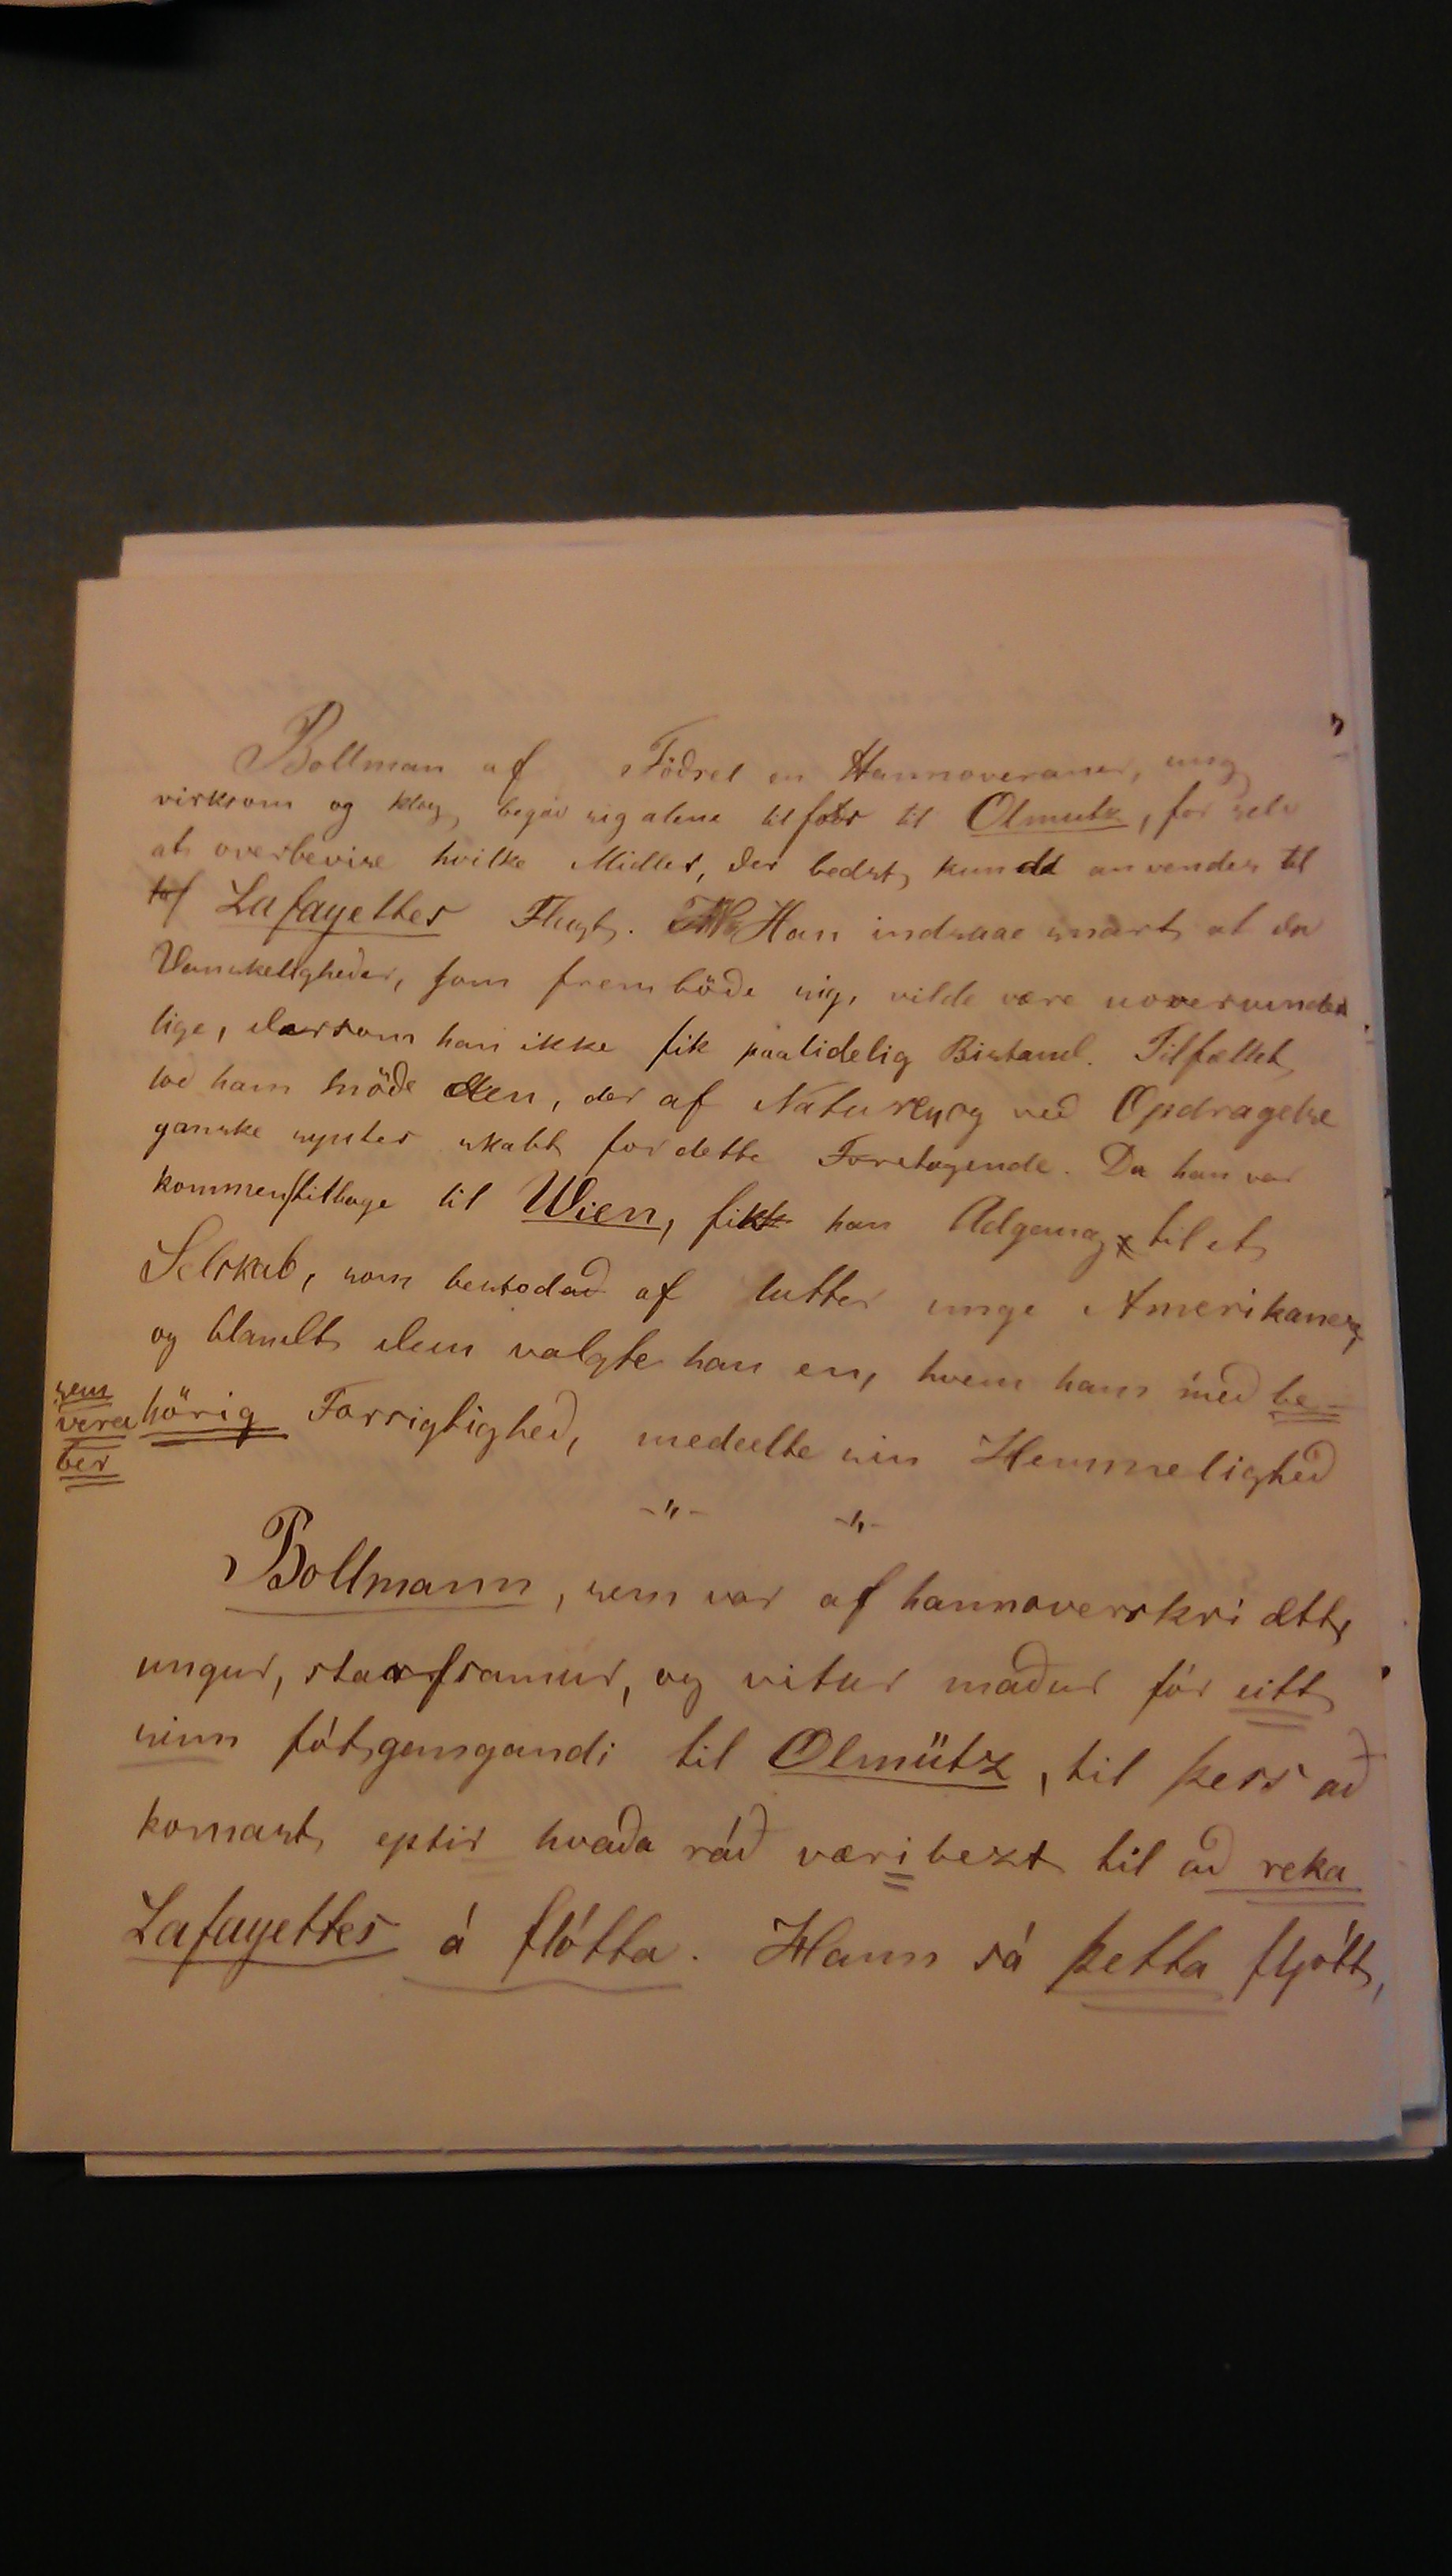 Bollman afFöðsel en Hannoveraner, ung
virksom og klog, begav sig alene til fods til Olmutz, for selv
at overbevise hvilke Midler, der bedst kunde anvendes til
Lafayettes Flugt. Han indsaae snart at de
Vanskeligheder, som fremböðe sig, vilde være uoverunder
lige, dersom han ikke fik paalidelig Bistand. Tilfældet
lod ham möðe den, der af Naturen og ved Opdragelse
ganske syntes skabt for dette Foretagende. Da han var
kommen tilbage til Wien, fik han Adgang til et
Selskab, som bestod af lutter unge Amerikanere,
og blandt dem valgte han en, hvem han með be-
sem
vera
ber
hörig Forsigtighed, medeelte sin Hemmelighed
-"- -"-
Bollmann, sem var af hannoverskri ætt,
ungur, starfsamur, og vitur maður fór eitt
sinn fótgangandi til Olmütz, til þess að
komast eptir hvaða ráð væri bezt til að reka
Lafayettes á flótta. Hann sá þetta fljótt,